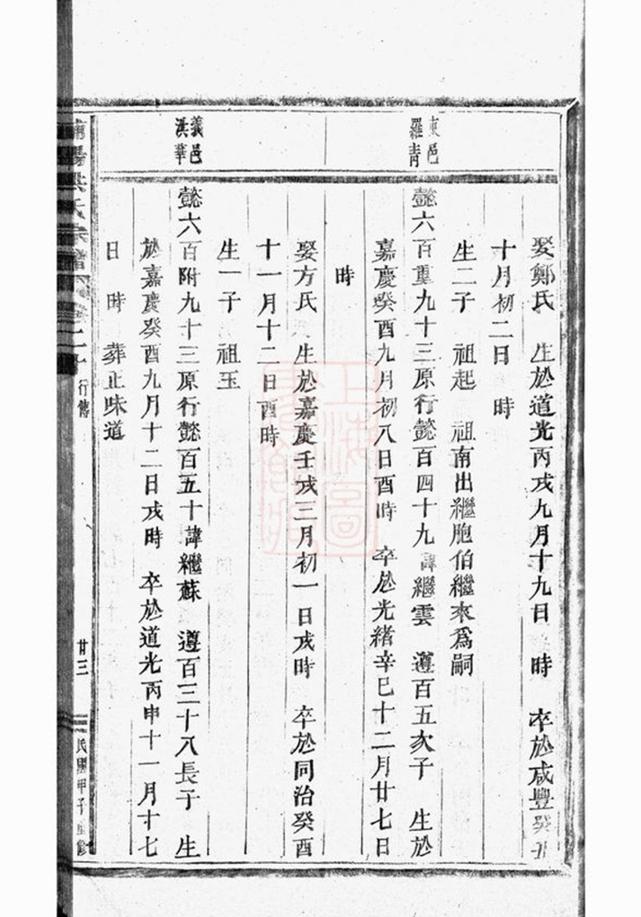 東邑
羅青
義邑
洪華
娶鄭氏 生於道光丙戌九月十九日 時 卒於咸豐癸丑
十月初二日 時
生二子 祖起 祖南出繼胞伯繼來爲嗣
懿六百重九十三原行懿百四十九諱繼雲 遵百五次子 生於
嘉慶癸酉九月初八日酉時 卒於光緒辛巳十二月廿七日
時
娶方氏 生於嘉慶壬戌三月初一日戌時 卒於同治癸酉
十一月十二日酉時
生一子 祖玉
懿六百附九十三原行懿百五十諱繼蘇 遵百三十八長子 生
於嘉慶癸酉九月十二日戌時 卒於道光丙申十一月十七
日 時 葬正味道
陽洪氏宗譜
行傳
廿三
民國甲子重修
上海圖